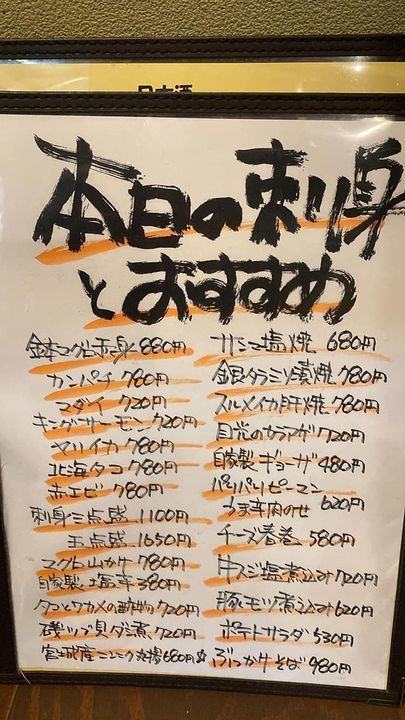 本日の刺身
とおすすめ
本マグロ赤身 880円
カンパチ 780円
マダイ 720円
キングサーモン 720円
ヤリイカ 780円
北海タコ 780円
赤エビ 780円
刺身三点盛 1100円
五点盛 1650円
マグロ山かけ 780円
自家製塩辛 380円
タコとワカメの酢の物 720円
磯ツブ貝ダシ煮 720円
宮城産ニンニク丸揚 680円
塩焼 680円
銀ダラミソ漬焼 780円
スルメイカ肝焼 780円
目光のカラアゲ 720円
自家製ギョーザ 480円
パリパリピーマン
うま辛肉のせ 620円
チーズ春巻 580円
牛スジ塩煮込み 720円
豚モツ煮込み 620円
ポテトサラダ 530円
ぶっかけそば 980円